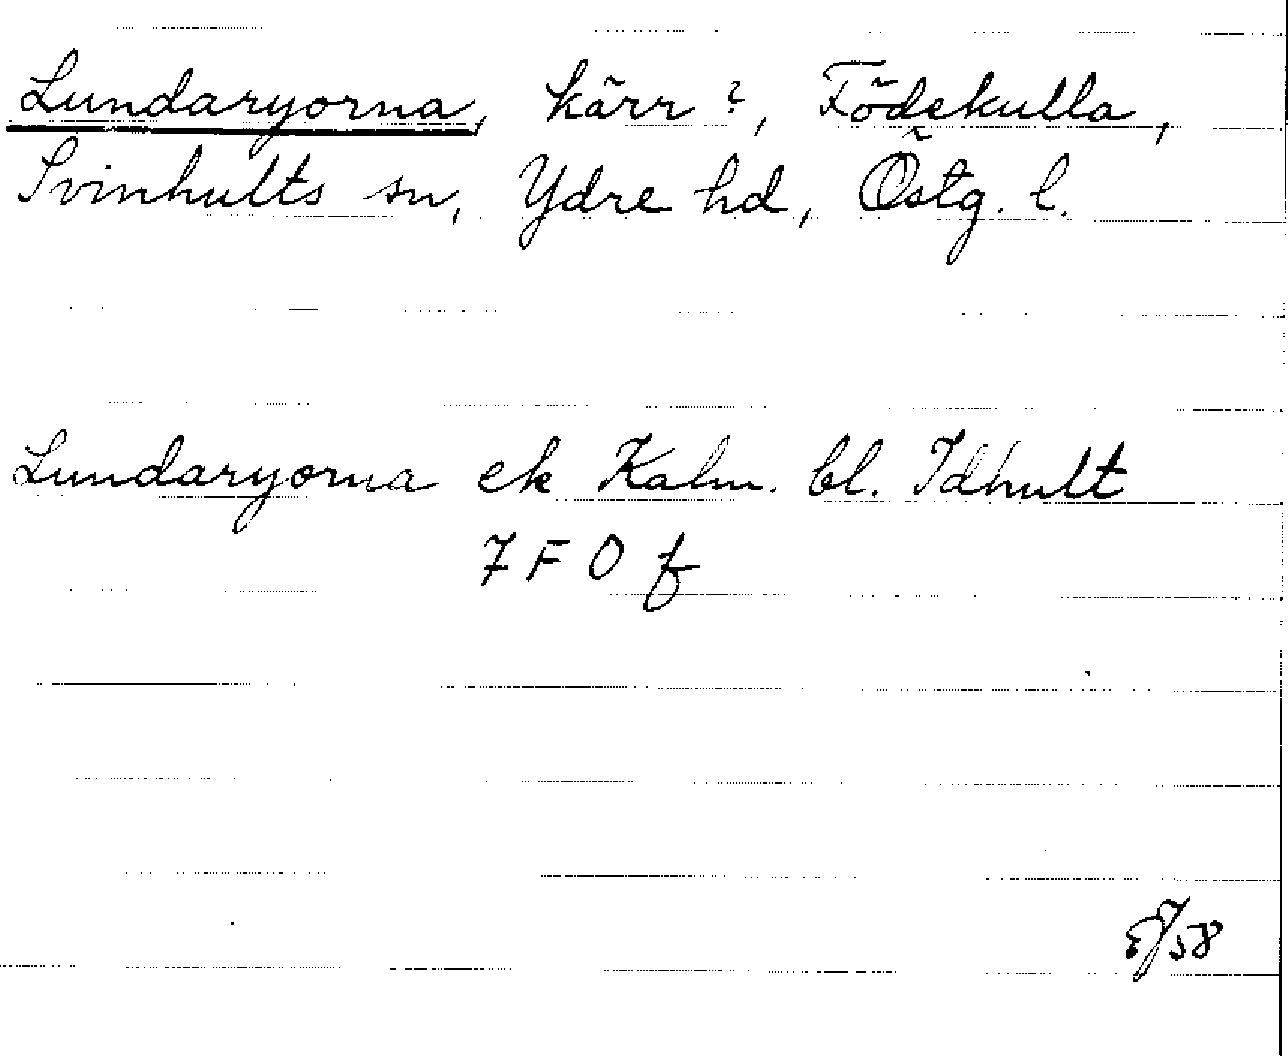 Lundaryorna, kärr ?, Födekulla,
Svinhults sn, Ydre hd, Östg. l.
Lundaryorna ek Kalm. bl. Idhult
7 F 0 f